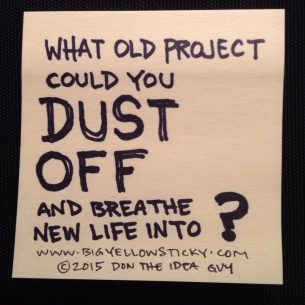 WHAT OLD PROJECT
COULD YOU
DUST
OFF
AND BREATHE
NEW LIFE INTO ?
WWW.BIGYELLOWSTICKY.COM
©2015 DON THE IDEA GUY